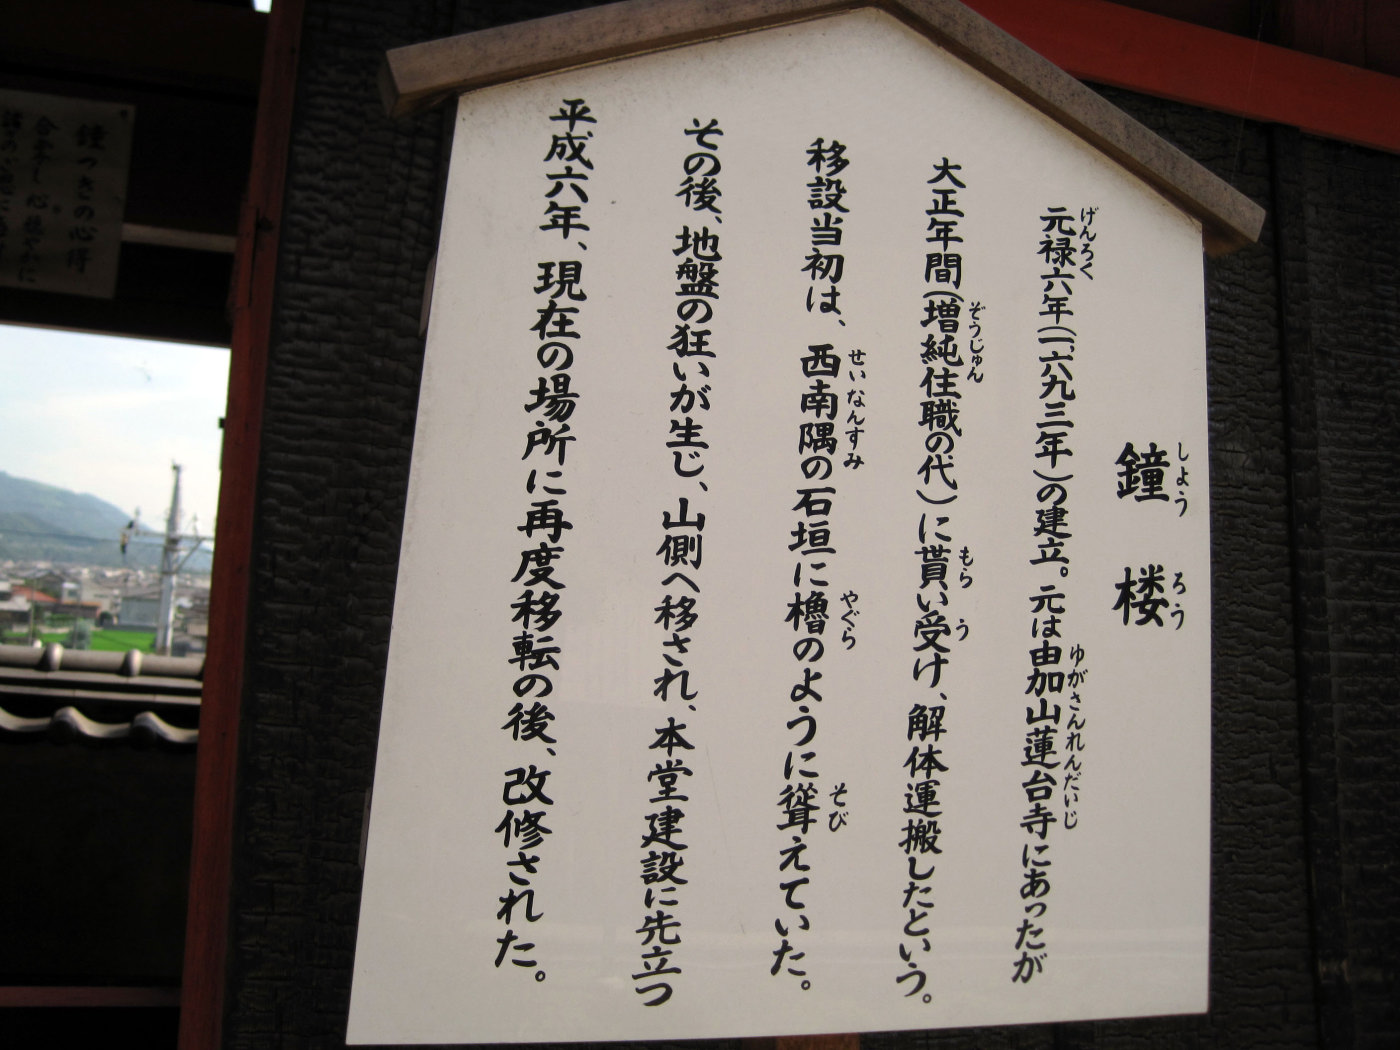 鐘楼
しょうろう
元禄六年(一六九三年)の建立。元は由加山蓮台寺にあったが
げんろく ゆがさんれんだいじ
大正年間(増純住職の代)に貰い受け、解体運搬したという。
ぞうじゅん もら う
移設当初は、西南隅の石垣に櫓のように聳えていた。
せいなんすみ やぐら そび
その後、地盤の狂いが生じ、山側へ移され、本堂建設に先立つ
平成六年、現在の場所に再度移転の後、改修された。
鐘つきの心得
合掌し心穏やかに